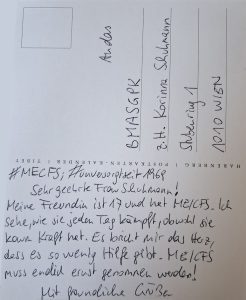 An das
BMASGPK
z.H. Korinna Schumann
Stubenring 1
1010 WIEN
HARENBERG | POSTKARTEN-KALENDER | TIBET
#MECFS; #unversorgtseit1969
Sehr geehrte Frau Schumann!
Meine Freundin ist 17 und hat ME/CFS. Ich
sehe, wie sie jeden Tag kämpft, obwohl sie
kaum Kraft hat. Es bricht mir das Herz,
dass es so wenig Hilfe gibt. ME/CFS
muss endlich ernst genommen werden!
Mit freundliche Grüßen